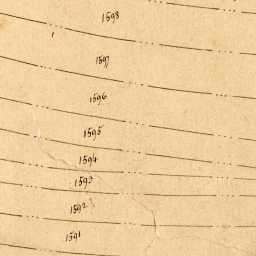 1598
1597
1596
1595
1594
1593
1592
1591